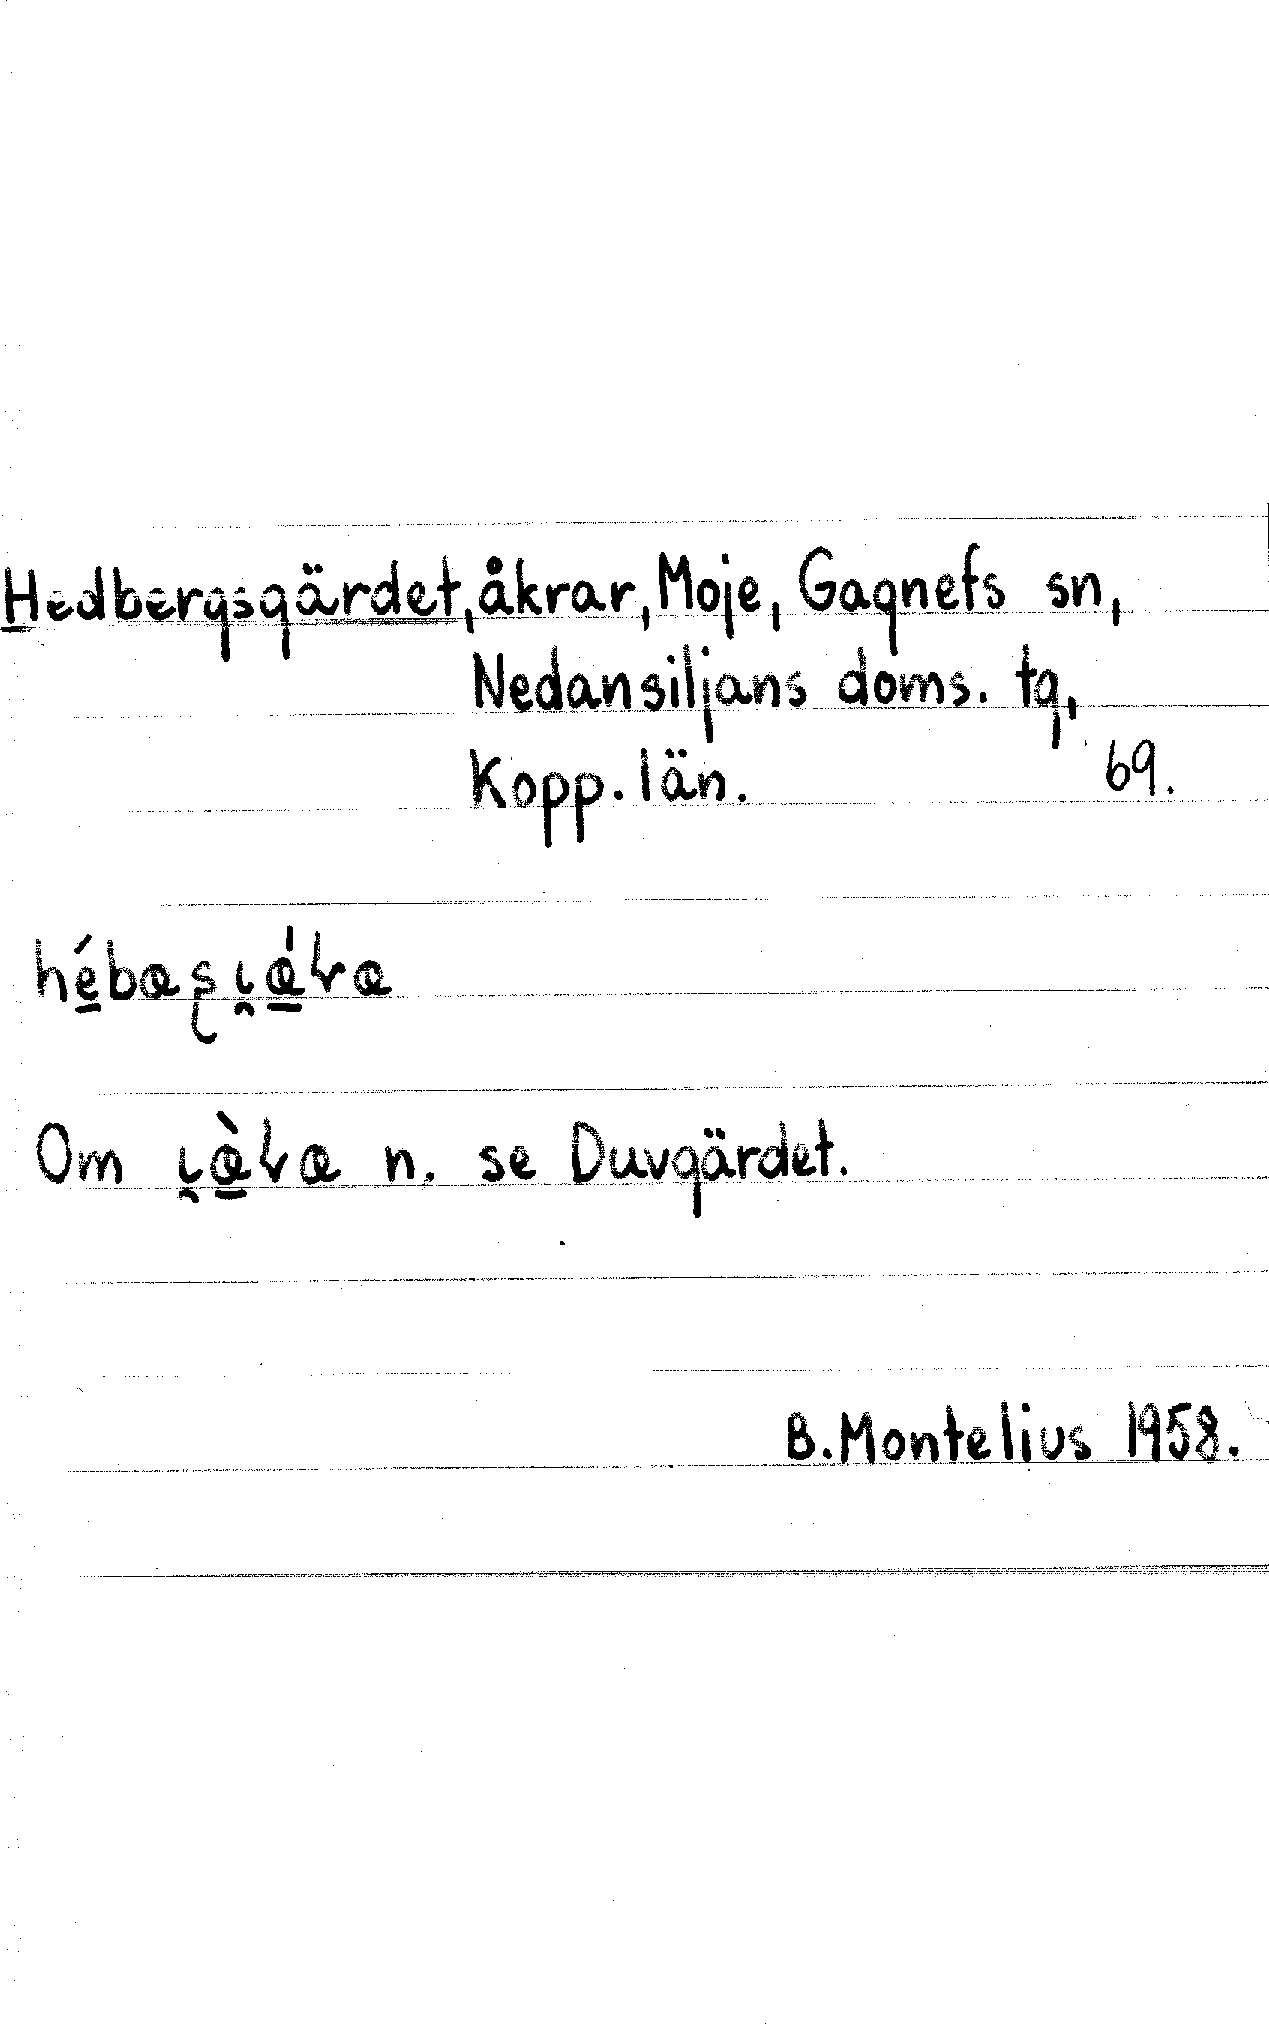 Hedbergsgärdet, åkrar, Moje, Gagnefs sn,
Nedansiljans doms. tg,
Kopp. län. 69.
Om n. se Duvgärdet.
B. Montelius 1958.